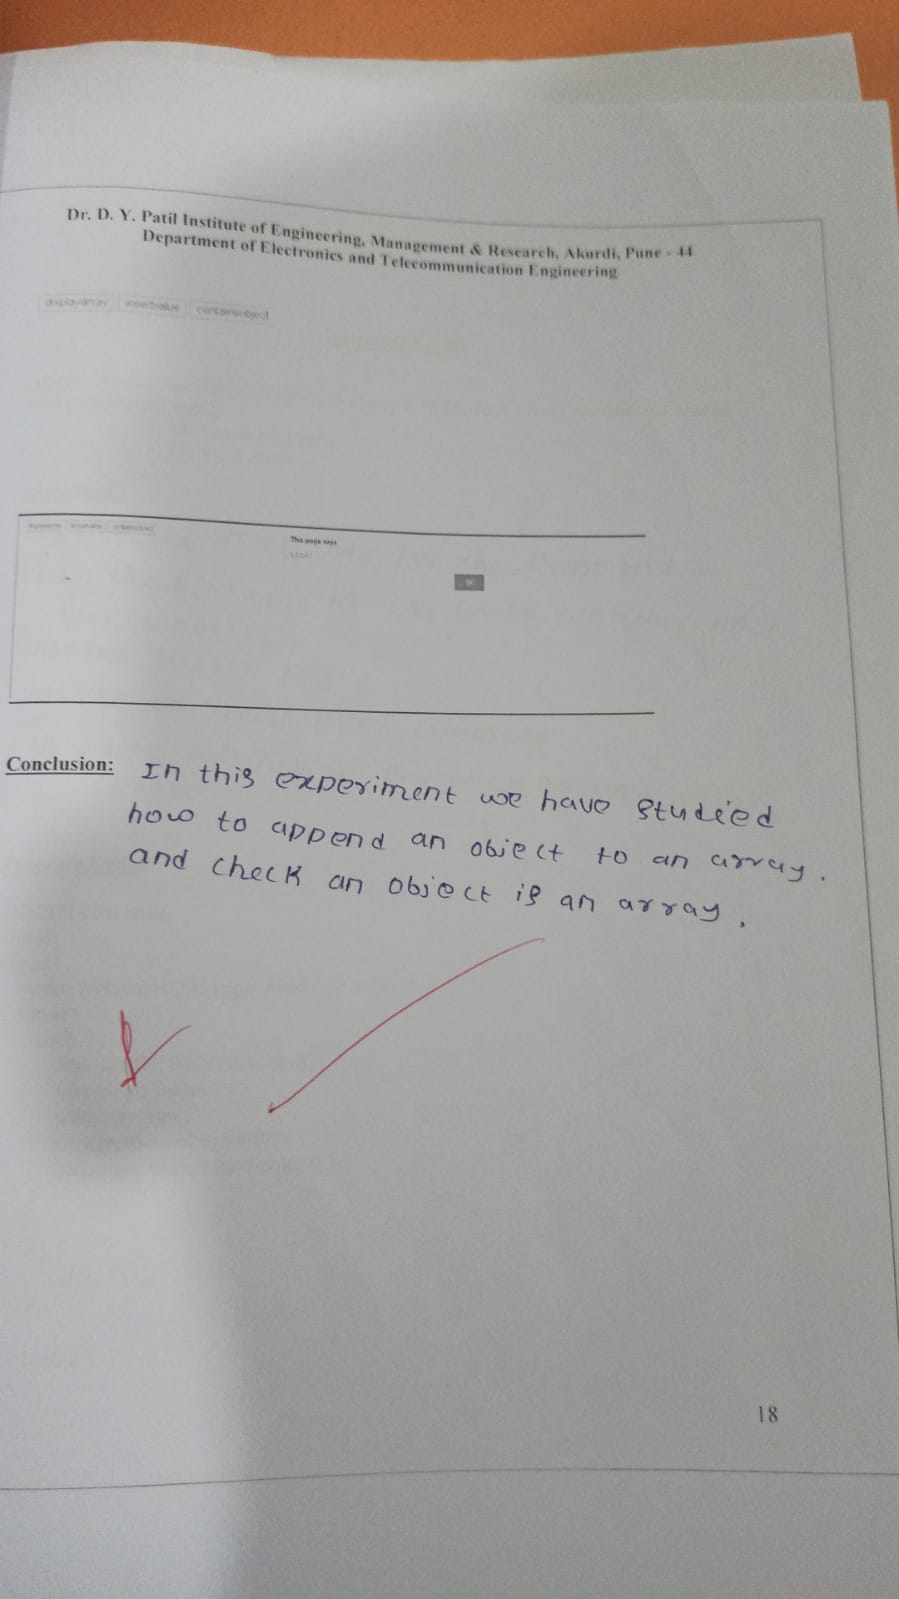 Dr. D. Y. Patil Institute of Engineering, Management & Research, Akurdi, Pune - 44
Department of Electronics and Telecommunication Engineering
displayarray insertvalue containsobject
This page says
Conclusion: In this experiment we have studied
how to append an object to an array.
and check an object is an array.
18